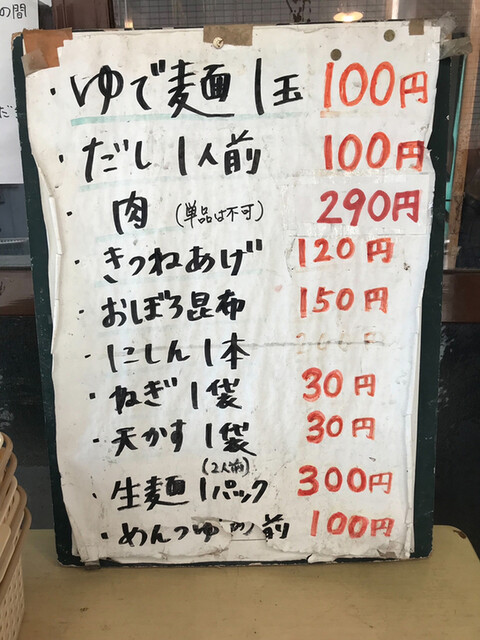 の間
だ
・ゆで麺 1玉 100円
・だし 1人前 100円
・肉 (単品は不可) 290円
・きつねあげ 120円
・おぼろ昆布 150円
・にしん 1本
・ねぎ 1袋 30円
・天かす 1袋 30円
(2人前)
・生麺 1パック 300円
・めんつゆ 前 100円